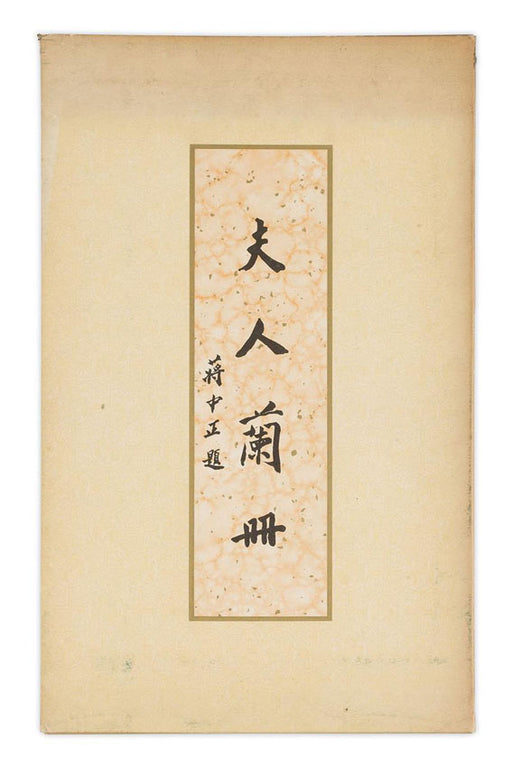 夫人蘭冊
蔣中正題